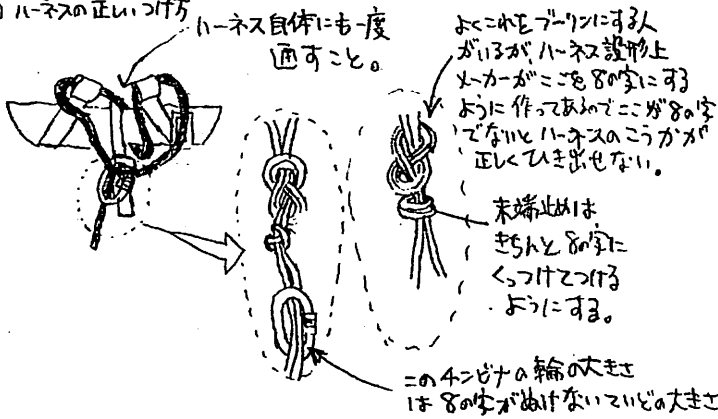 ハーネスの正しいつけ方
ハーネス自体にも一度
通すこと。
よくこれをブーリンにする人
がいるが、ハーネス設形上
メーカーがここを8の字にする
ように作ってあるのでここが8の字
でないとハーネスのこうかが
正しくひき出せない。
末端止めは
きちんと8の字に
くっつけてつける
ようにする。
このチンビナの輪の大きさ
は8の字がぬけないていどの大きさ